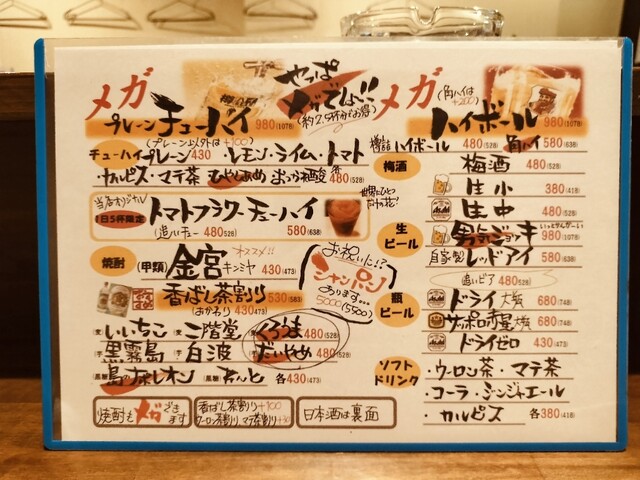 メガ
プレーンチューハイ 980(1078)
(プレーン以外は+100)
やっぱ
メガでしょ!!
(約2.5杯分でお得)
チューハイ プレーン 430 ・レモン・ライム・トマト
・カルピス・マテ茶
480(528)
当店オリジナル
1日5杯限定
トマトフラワーチューハイ
(追いチュー 480(528)
580(638)
焼酎
(甲類)
金宮 キンミヤ 430(473)
オススメ!!
香ばし茶割り 530(583)
(おかわり 430(473)
いいちこ 二階堂 くろうま 480(528)
黒霧島 白波 だいやめ 480(528)
各430(473)
焼酎もメガできます
香ばし茶割り+100
ウーロン茶割り、マテ茶割り+50
日本酒は裏面
お祝いに!?
シャンパン
あります…
5000(5500)
メガ
(角ハイは+200)
ハイボール 980(1078)
樽詰ハイボール 480(528) 角ハイ 580(638)
梅酒
梅酒 480(528)
生ビール
生小 380(418)
生中 480(528)
男気ジョッキ 980(1078)
自家製 レッドアイ 580(638)
追いビア 480(528)
瓶ビール
ドライ 大瓶 680(748)
サッポロ赤星 大瓶 680(748)
ドライゼロ 430(473)
ソフトドリンク
・ウーロン茶・マテ茶
・コーラ・ジンジャエール
・カルピス 各380(418)